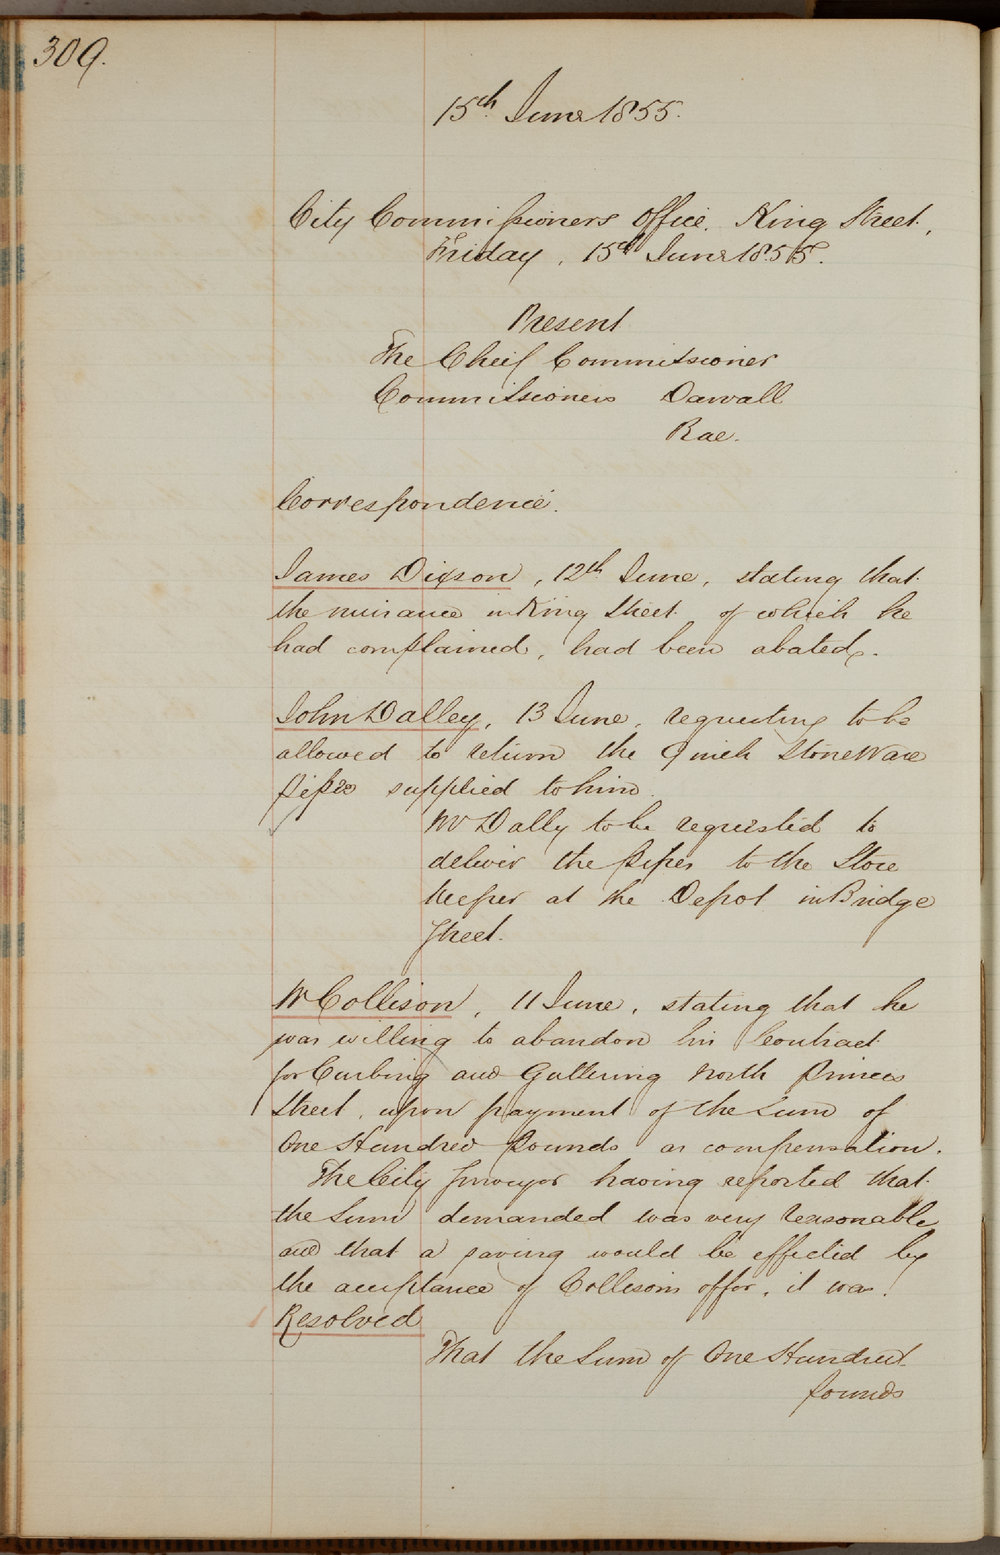 309.
15th June 1855.
City Commissioners Office. King Street,
Friday, 15th June 1855.
Present
The Cheif Commissioner
Commissioners Darvall
Rae.
Correspondence.
James Dixson, 12th June, stating that
the nuisance in King Street of which he
had complained, had been abated.
John Dalley, 13 June, requesting to be
allowed to return the 9 inch Stone Ware
pipes supplied to him.
Mr Dally to be requested to
deliver the pipes to the Store
keeper at the Depot in Bridge
Street.
W Collison, 11 June, stating that he
was willing to abandon his Contract
for Curbing and Guttering North Princes
Street, upon payment of the Sum of
One Hundred Pounds as compensation.
The City Surveyor having reported that
the Sum demanded was very reasonable
and that a saving would be effected by
the acceptance of Collisons offer, it was.
Resolved
That the Sum of One Hundred
pounds